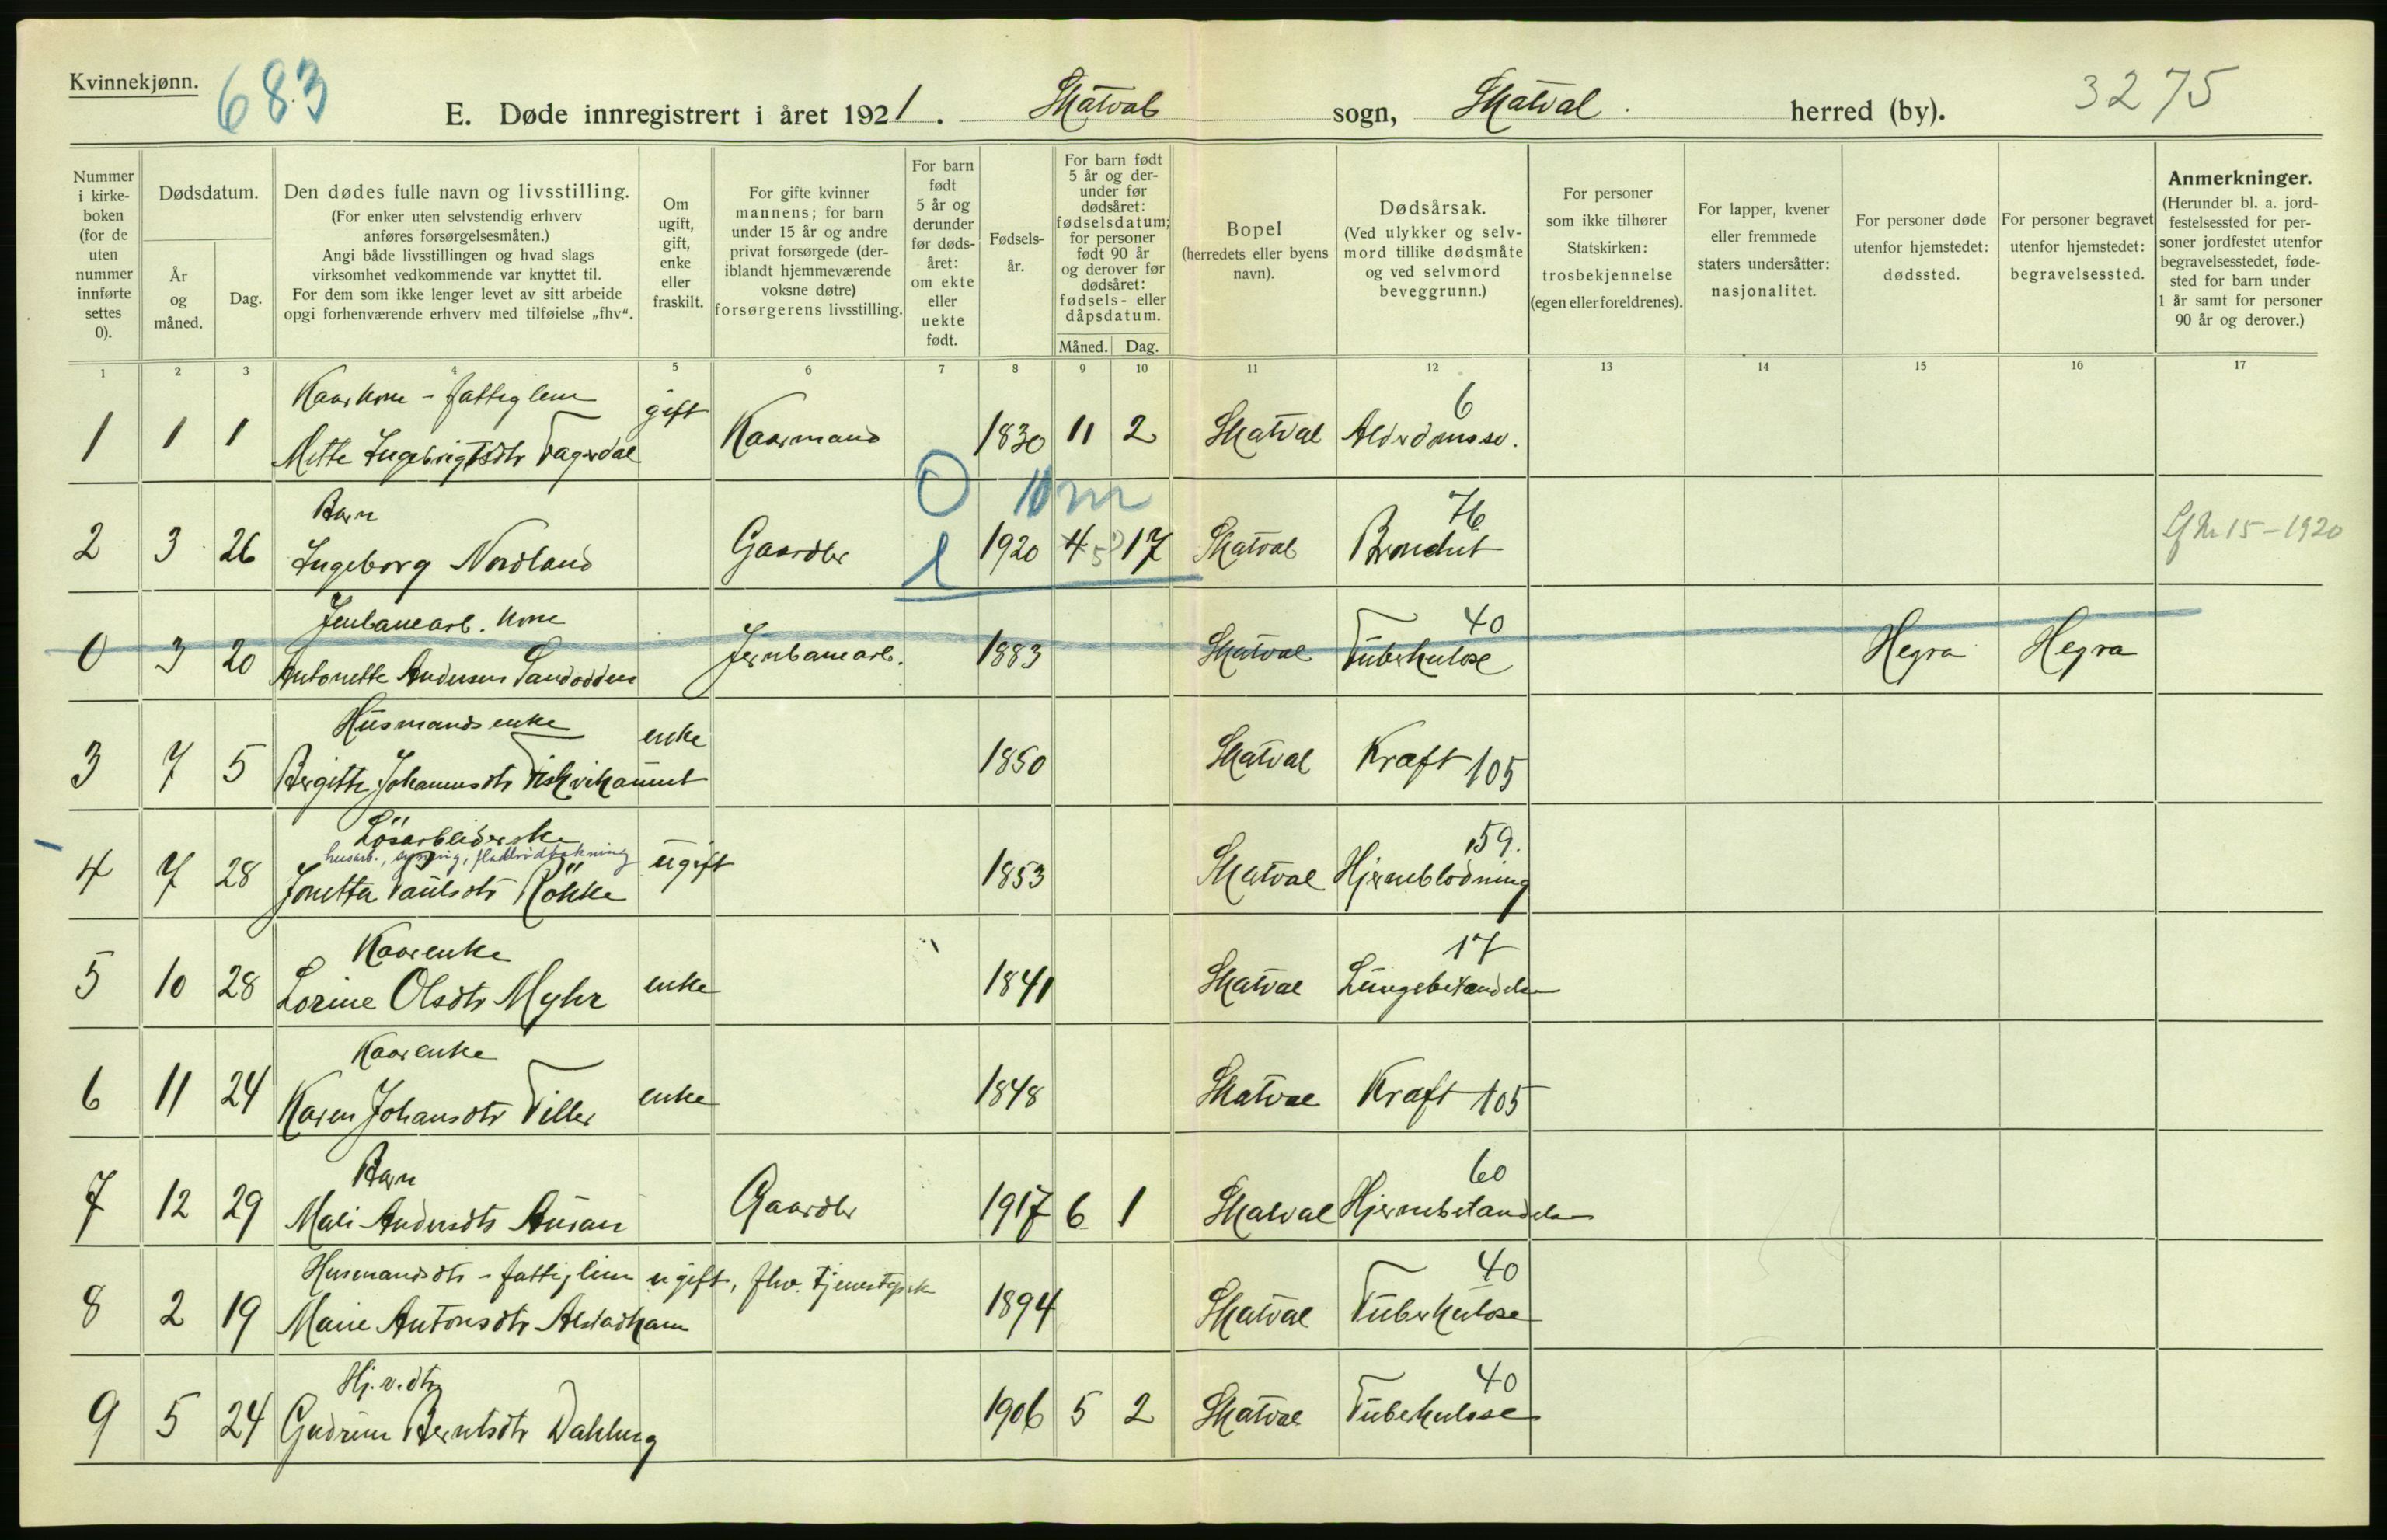 Kvinnekjønn.
683
E. Døde innregistrert i året 1921. Skatval sogn, Skatval herred (by).
3275
Nummer i kirkeboken (for de uten nummer innførte settes 0).
Dødsdatum.
År og måned.
Dag.
Den dødes fulle navn og livsstilling.
(For enker uten selvstendig erhverv anføres forsørgelsesmåten.)
Angi både livsstillingen og hvad slags virksomhet vedkommende var knyttet til.
For dem som ikke lenger levet av sitt arbeide opgi forhenværende erhverv med tilføielse „fhv“.
Om ugift, gift, enke eller fraskilt.
For gifte kvinner mannens; for barn under 15 år og andre privat forsørgede (deriblandt hjemmeværende voksne døtre) forsørgerens livsstilling.
For barn født 5 år og derunder før dødsåret: om ekte eller uekte født.
Fødselsår.
For barn født 5 år og derunder før dødsåret: fødselsdatum; for personer født 90 år og derover før dødsåret: fødsels- eller dåpsdatum.
Måned. Dag.
Bopel (herredets eller byens navn).
Dødsårsak.
(Ved ulykker og selvmord tillike dødsmåte og ved selvmord beveggrunn.)
For personer som ikke tilhører Statskirken: trosbekjennelse (egen eller foreldrenes).
For lapper, kvener eller fremmede staters undersåtter: nasjonalitet.
For personer døde utenfor hjemstedet: dødssted.
For personer begravet utenfor hjemstedet: begravelsessted.
Anmerkninger.
(Herunder bl. a. jordfestelsessted for personer jordfestet utenfor begravelsesstedet, fødested for barn under 1 år samt for personer 90 år og derover.)
1 2 3 4 5 6 7 8 9 10 11 12 13 14 15 16 17
Kaarkone - fattiglem gift 6
1 1 1 Mette Ingebrigtsdtr Fagerdal Kaarmand 1830 11 2 Skatval Alderdomssv.
0 10 m
Barn 76
2 3 26 Ingeborg Nordland Gaardbr 1 1920 4 5 17 Skatval Bronchit Lf Nr 15 - 1920
Jernbanearb. kone 40
0 3 20 Antonette Andersen Sandodden Jernbanearb. 1883 Skatval Tuberkulose Hegra Hegra
Husmandsenke enke
3 7 5 Bergitte Johannesdtr Fiskvikaunet 1850 Skatval Kræft 105
Løsarbeiderske 159.
husarb., syning, fladbrødbakning ugift
4 7 28 Jonetta Paulsdtr Røkke 1853 Skatval Hjerneblødning
Kaarenke 17
5 10 28 Lorine Olsdtr Myhr enke 1841 Skatval Lungebetændelse
Kaarenke
6 11 24 Karen Johansdtr Tiller enke 1848 Skatval Kræft 105
Barn 60
7 12 29 Mali Andersdtr Auran Gaardbr 1917 6 1 Skatval Hjernebetændelse
Husmandsdtr - fattiglem ugift, fhv. tjenestepike 40
8 2 19 Marie Antonsdtr Alstadhaug 1894 Skatval Tuberkulose
Hj. v. dtr 40
9 5 24 Gudrun Berntsdtr Dahling 1906 5 2 Skatval Tuberkulose